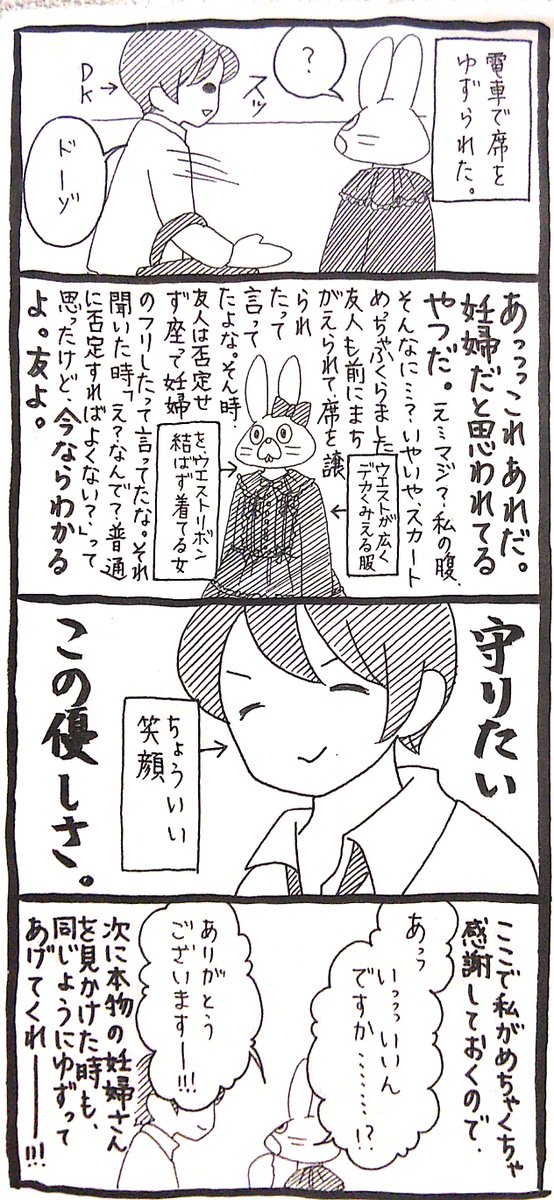 電車で席を
ゆずられた。
?
スッ
DK→
ドーゾ
あっっっこれあれだ。
妊婦だと思われてる
やつだ。え…マジ?私の腹、
そんなに…?いやいや、スカート
めっちゃふくらましたし
友人も前にまち
がえられて席を譲
られ
たって
言って
たよな。そん時
友人は否定せ
ず座って妊婦
のフリしたって言ってたな。それ
聞いた時「え?なんで?普通
に否定すればよくない?」って
思ったけど、今ならわかる
よ。友よ。
ウエストが広く
デカくみえる服
ウエストリボン
を結ばず着てる女
守りたい
この優しさ。
ちょういい
笑顔
ここで私がめちゃくちゃ
感謝しておくので、
あっっ
いっっいいん
ですか………!?
ありがとう
ございますー!!!
次に本物の妊婦さん
を見かけた時も、
同じようにゆずって
あげてくれ―――!!!